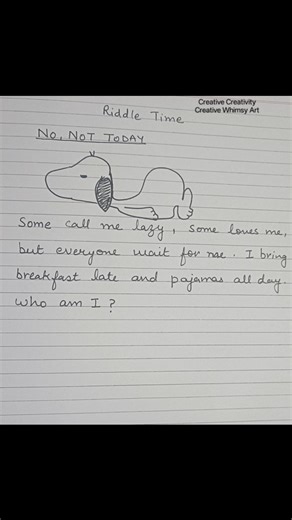 Creative Creativity
Creative Whimsy Art
Riddle Time
No, NOT TODAY
Some call me lazy, some loves me,
but everyone wait for me. I bring
breakfast late and pajamas all day.
who am I ?